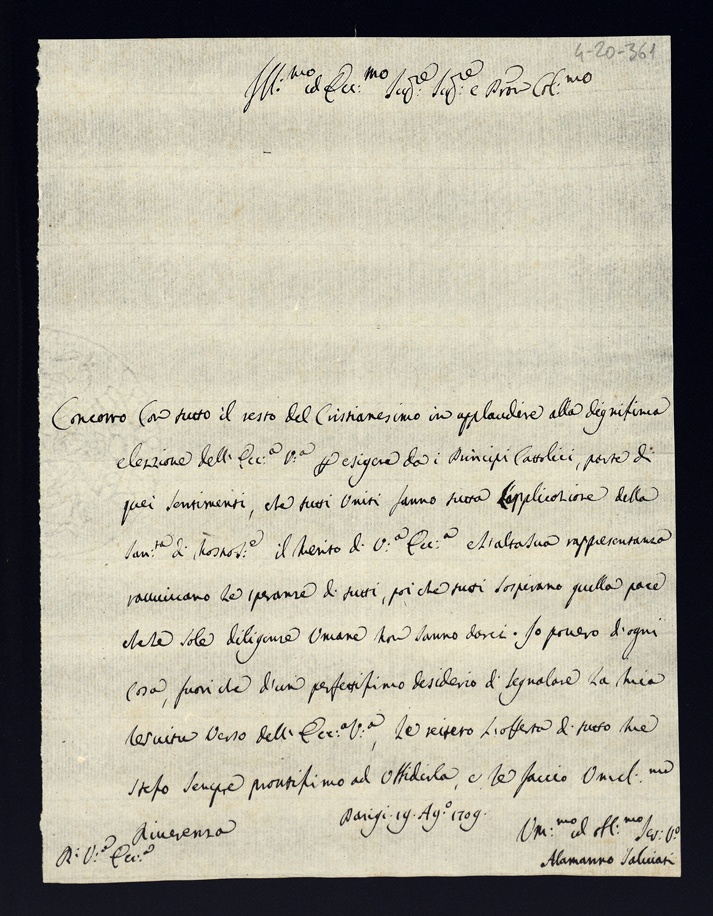 4-20-361
Ill:mo ed Ecc:mo Sig.re Sig.re e Pron Col:mo
Concorro Con tutto il resto del Cristianesimo in applaudire alla dignissima
elezzione dell' Ecc:a V:a p esigere da i Principi Cattolici, parte di
quei Sentimenti, che tutti Uniti fanno tutta l'applicazione della
San:tà di Nostro S:e il merito di V:a Ecc:a e l'alta Sua rappresentanza
ravvivano le speranze di tutti, poi che tutti Sospirano quella pace
che le Sole diligenze Umane non Sanno darci. Io povero d'ogni
Cosa, fuori che d'un perfettissimo desiderio di Segnalare La mia
Servitù Verso dell' Ecc:a V:a, Le reitero L'offerta di tutto me
stesso Sempre prontissimo ad Ubbidirla, e le faccio Umil:ma
Riverenza
Parigi 19 Ag.o 1709.
Di V:a Ecc:a
Um:mo ed obl:mo Ser: V.o
Alamanno Salviati